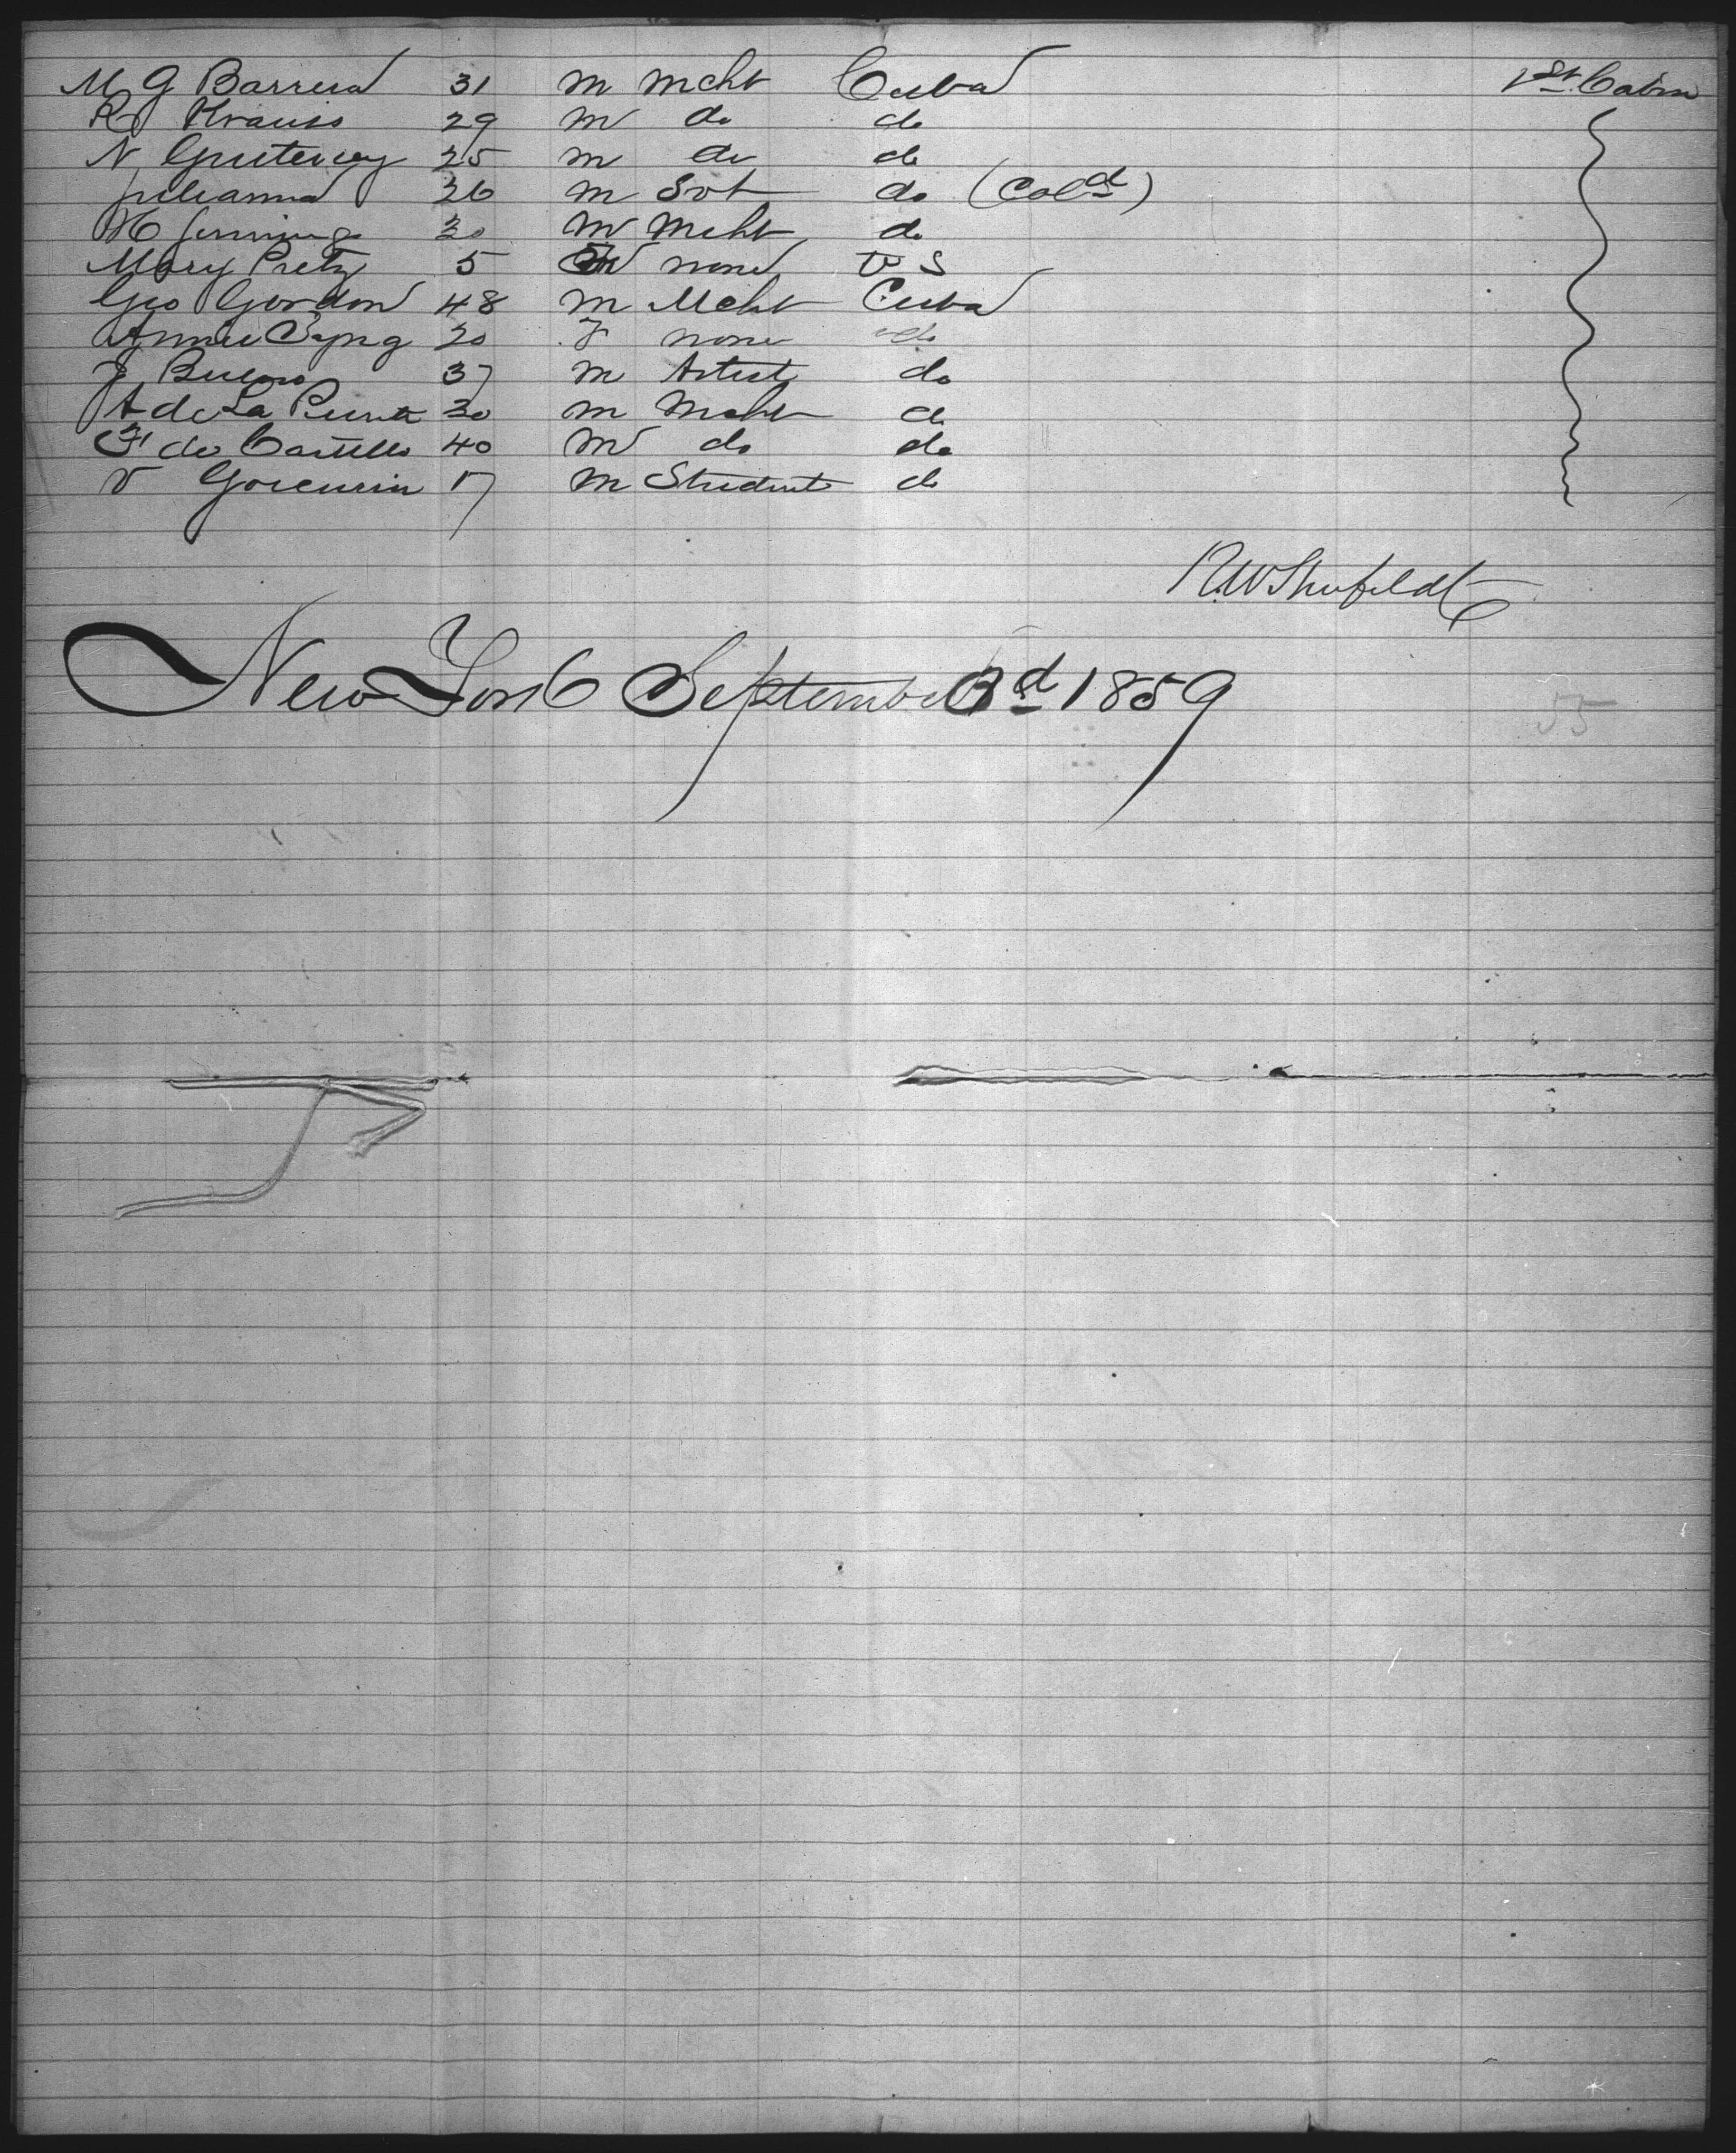 M G Barrera 31 m mcht Cuba 1st Cabin
R Krauss 29 m do do
N 25 m do do
Julianna 26 m Svt do (Cold)
H Jennings 30 m Mcht do
Mary Pretz 5 none U S
Geo Gordon 48 m Mcht Cuba
Annie Byng 20 F none do
J Bueno 37 m Artist do
A de La Punta 30 m Mcht do
F de Castillo 40 m do do
V Goicuria 17 m Student do
R.W. Shufeldt
New York September 3d 1859
55